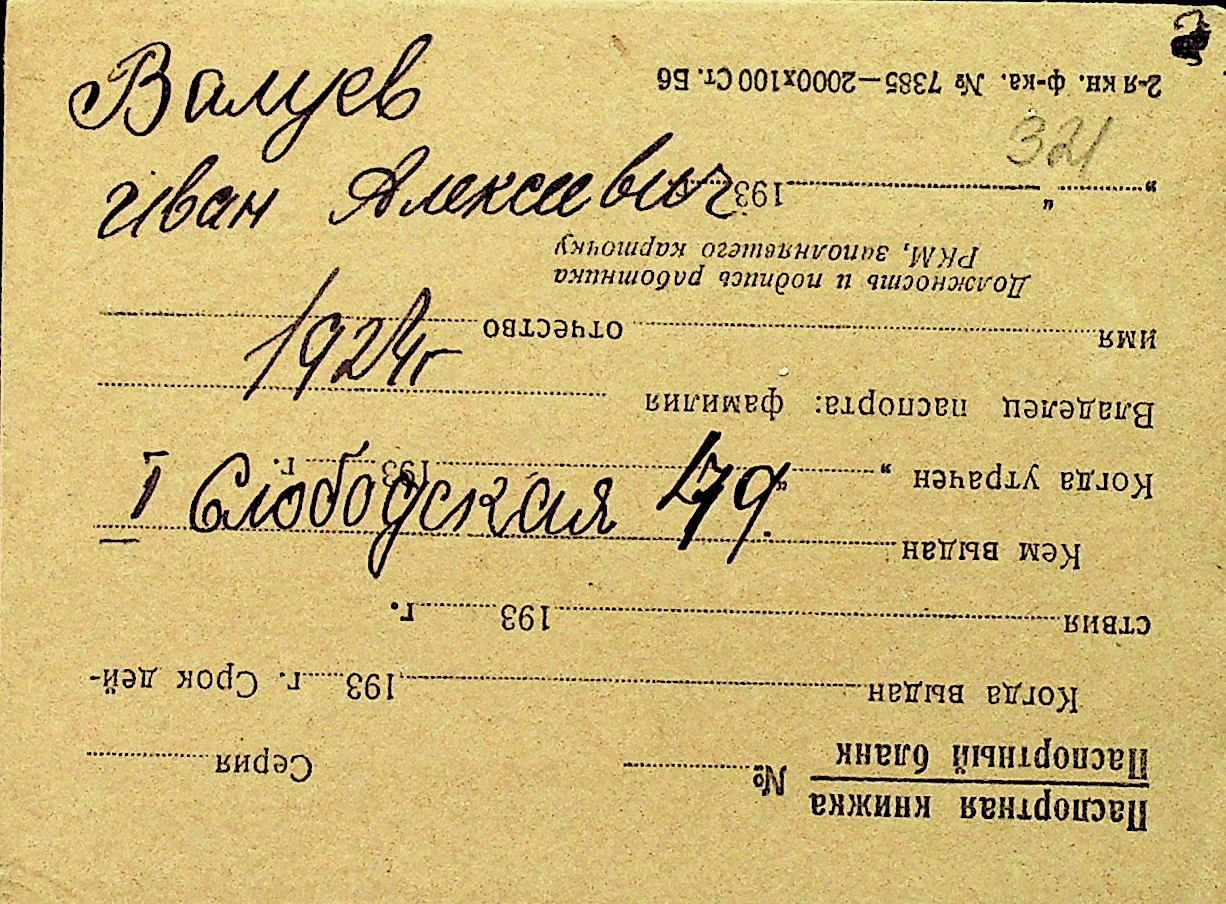 Валуев
Иван Алексеевич
1924г
I Слободская 49.
321
Паспортная книжка
Паспортный бланк
№ Серия
Когда выдан 193 г. Срок дей-
ствия 193 г.
Кем выдан
Когда утрачен „ “ 193 г.
Владелец паспорта: фамилия
имя отчество
Должность и подпись работника
РКМ, заполнявшего карточку
„ “ 193
2-я кн. ф-ка. № 7385—2000х100 Ст. Б6